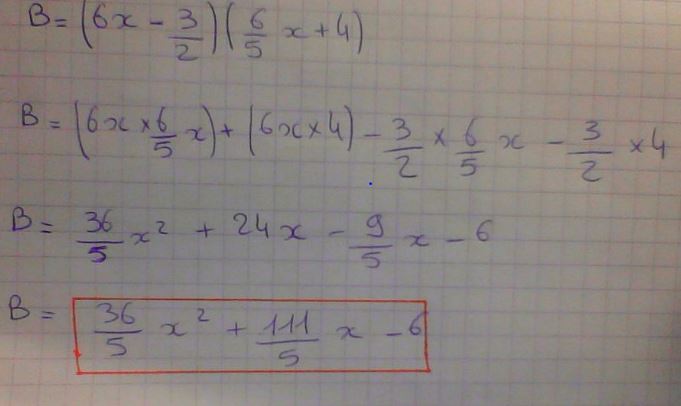 B = (6x - 3/2)(6/5 x + 4)
B = (6x × 6/5 x) + (6x × 4) - 3/2 × 6/5 x - 3/2 × 4
B = 36/5 x² + 24x - 9/5 x - 6
B = 36/5 x² + 111/5 x - 6